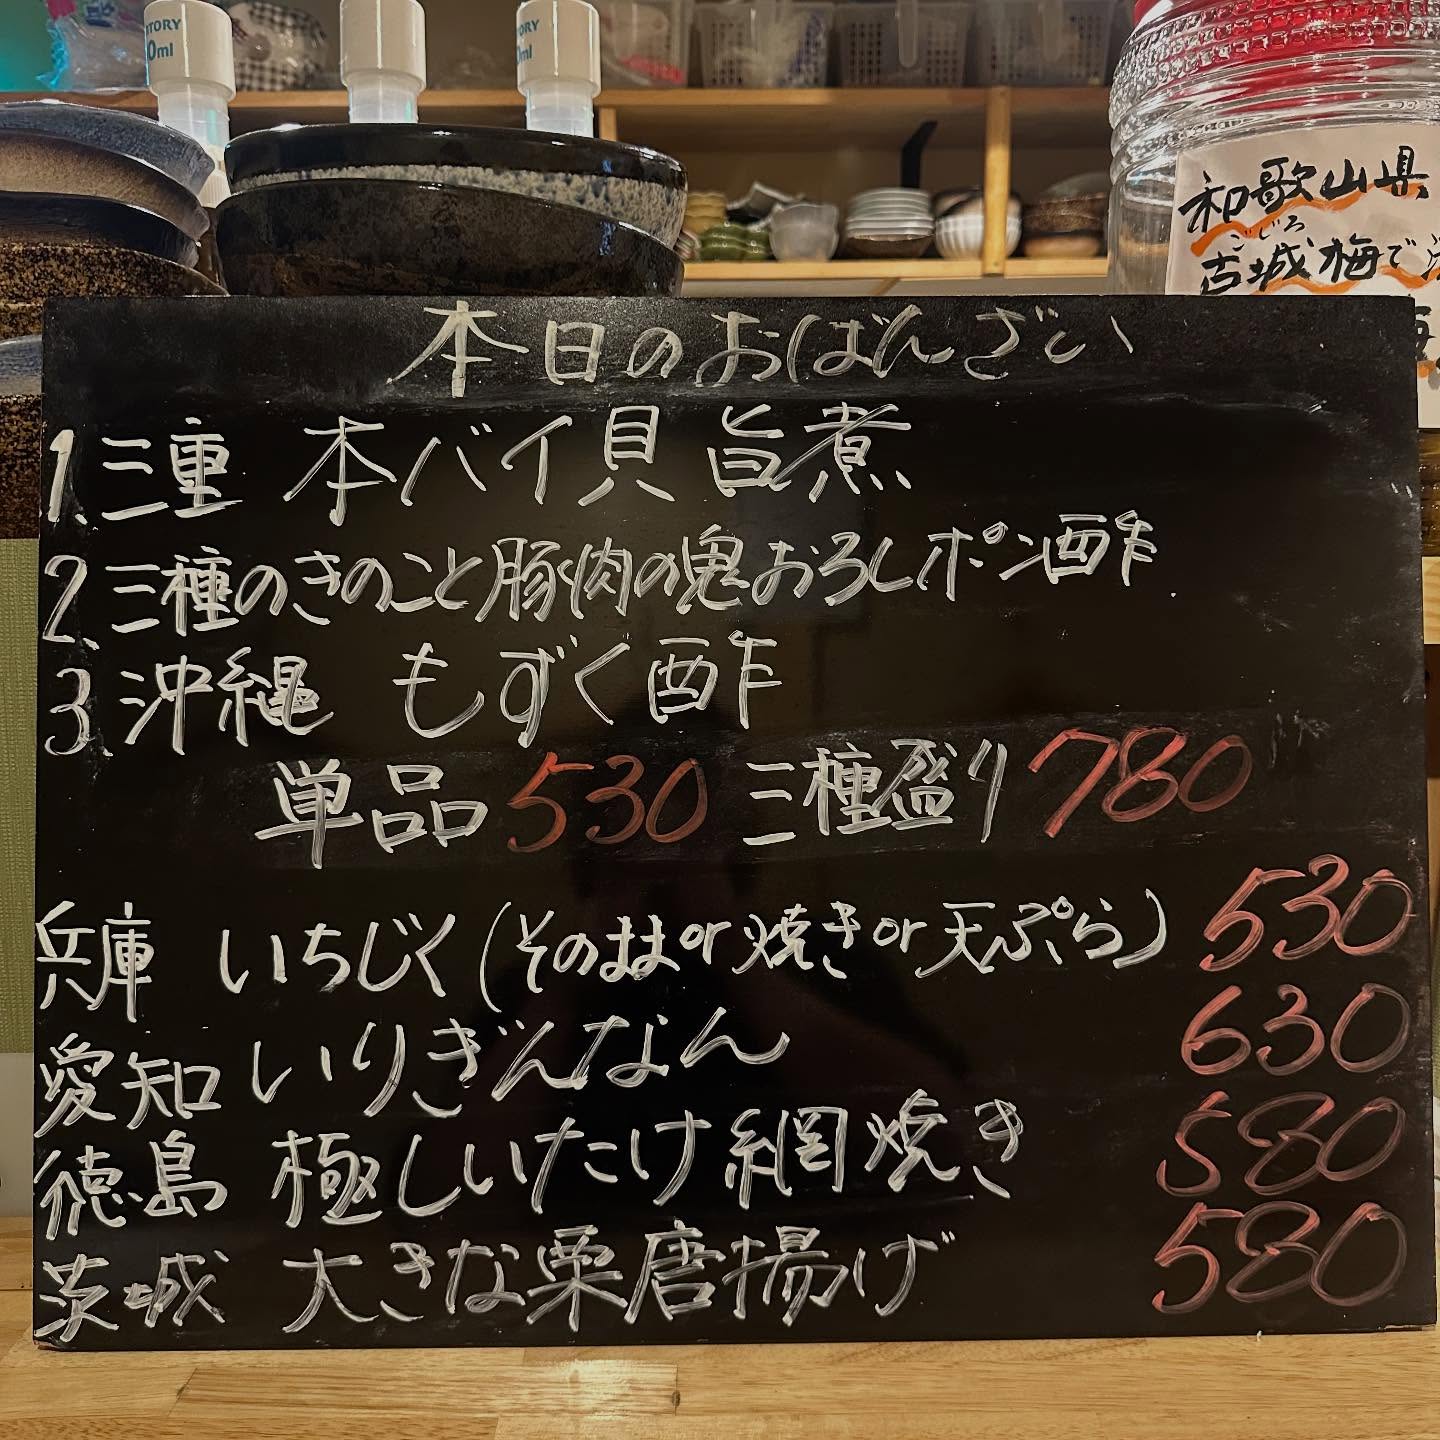 TORY
0ml
TORY
0ml
和歌山県
こじろ
古城梅で
本日のおばんざい
1.三重 本バイ貝旨煮
2.三種のきのこと豚肉の鬼おろしポン酢
3.沖縄 もずく酢
単品530 三種盛り780
兵庫 いちじく(そのままor焼きor天ぷら) 530
愛知 いりぎんなん 630
徳島 極しいたけ網焼き 580
茨城 大きな栗唐揚げ 580